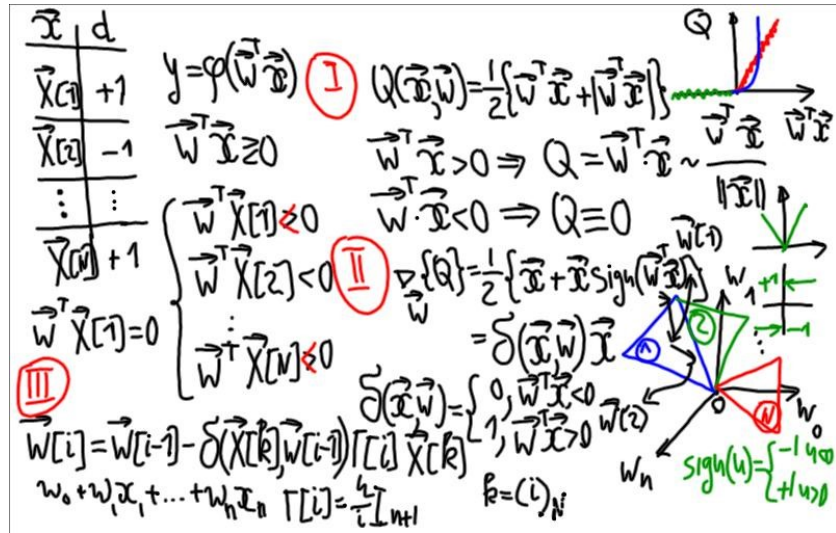 x⃗ | d
X⃗[1] | +1
X⃗[2] | -1
⋮ | ⋮
X⃗[N] | +1
y=φ(w⃗ᵀx⃗)
w⃗ᵀx⃗≥0
w⃗ᵀX⃗[1]<0
w⃗ᵀX⃗[2]<0
⋮
w⃗ᵀX⃗[N]<0
w⃗ᵀX⃗[1]=0
I
Q(x⃗,w⃗)=½{w⃗ᵀx⃗+|w⃗ᵀx⃗|}
w⃗ᵀx⃗>0 ⇒ Q=w⃗ᵀx⃗ ~ w⃗ᵀx⃗/||x⃗||
w⃗ᵀ·x⃗<0 ⇒ Q≡0
Q
w⃗ᵀx⃗
II
∇_w⃗{Q}=½{x⃗+x⃗sign(w⃗ᵀx⃗)}
=δ(x⃗,w⃗)x⃗
δ(x⃗,w⃗)={0, w⃗ᵀx⃗<0
1, w⃗ᵀx⃗>0
III
w⃗[i]=w⃗[i-1]-δ(X⃗[k],w⃗[i-1])Γ[i]X⃗[k]
w₀+w₁x₁+...+wₙxₙ
Γ[i]=h/i Iₙ₊₁
k=(i)_N
w⃗[1]
w₁
+1
-1
1
2
⋮
N
0
w₀
w⃗[2]
wₙ
sign(u)={-1 u<0
+1 u>0